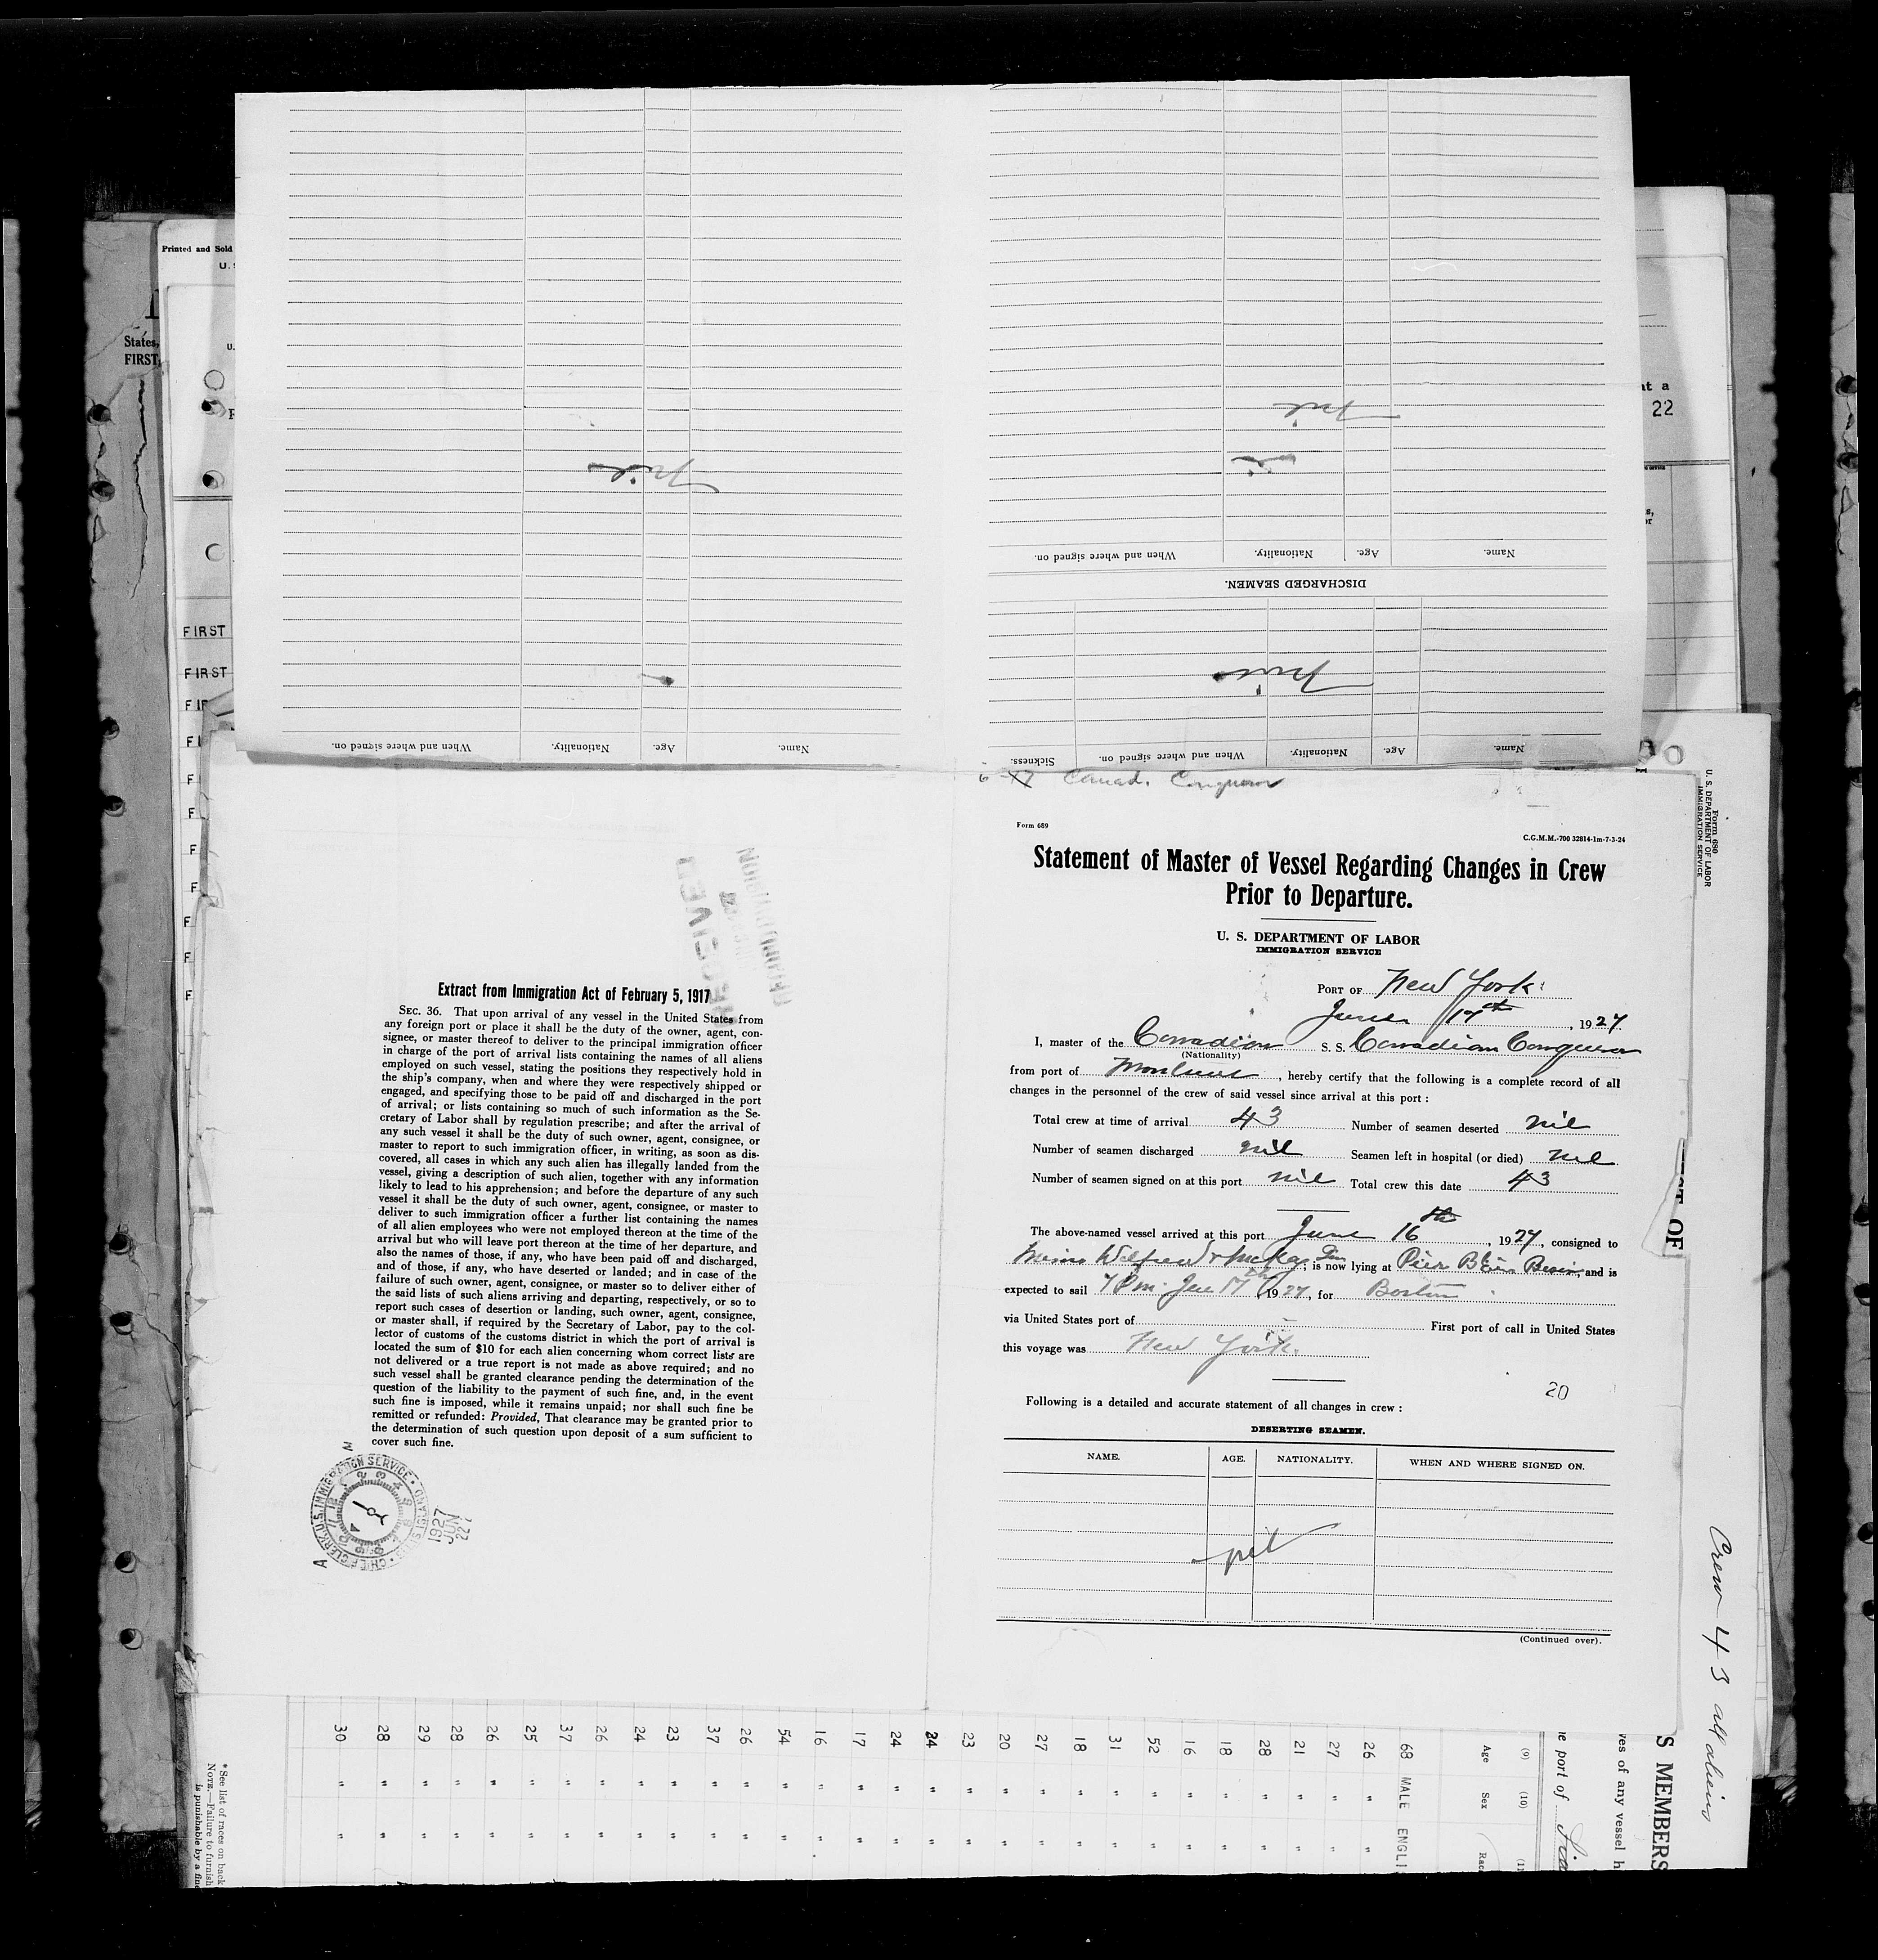 Printed and Sold
U. S
States,
FIRST
at a
22
FIRST
FIRST
Name. Age. Nationality. When and where signed on.
nil
Name. Age. Nationality. When and where signed on. Sickness.
nil
DISCHARGED SEAMEN.
Name. Age. Nationality. When and where signed on.
nil
Extract from Immigration Act of February 5, 1917
SEC. 36. That upon arrival of any vessel in the United States from
any foreign port or place it shall be the duty of the owner, agent, con-
signee, or master thereof to deliver to the principal immigration officer
in charge of the port of arrival lists containing the names of all aliens
employed on such vessel, stating the positions they respectively hold in
the ship's company, when and where they were respectively shipped or
engaged, and specifying those to be paid off and discharged in the port
of arrival; or lists containing so much of such information as the Se-
cretary of Labor shall by regulation prescribe; and after the arrival of
any such vessel it shall be the duty of such owner, agent, consignee, or
master to report to such immigration officer, in writing, as soon as dis-
covered, all cases in which any such alien has illegally landed from the
vessel, giving a description of such alien, together with any information
likely to lead to his apprehension; and before the departure of any such
vessel it shall be the duty of such owner, agent, consignee, or master to
deliver to such immigration officer a further list containing the names
of all alien employees who were not employed thereon at the time of the
arrival but who will leave port thereon at the time of her departure, and
also the names of those, if any, who have been paid off and discharged,
and of those, if any, who have deserted or landed; and in case of the
failure of such owner, agent, consignee, or master so to deliver either of
the said lists of such aliens arriving and departing, respectively, or so to
report such cases of desertion or landing, such owner, agent, consignee,
or master shall, if required by the Secretary of Labor, pay to the col-
lector of customs of the customs district in which the port of arrival is
located the sum of $10 for each alien concerning whom correct lists are
not delivered or a true report is not made as above required; and no
such vessel shall be granted clearance pending the determination of the
question of the liability to the payment of such fine, and, in the event
such fine is imposed, while it remains unpaid; nor shall such fine be
remitted or refunded: Provided, That clearance may be granted prior to
the determination of such question upon deposit of a sum sufficient to
cover such fine.
RECEIVED
U.S. IMMIGRATION SERVICE
CHIEF CLERK
1927
JUN
22
Form 689
C.G.M.M.-700 32814-1m-7-3-24
Statement of Master of Vessel Regarding Changes in Crew
Prior to Departure.
U. S. DEPARTMENT OF LABOR
IMMIGRATION SERVICE
PORT OF New York
June 17th, 1927
I, master of the Canadian S. S. Canadian Conqueror
(Nationality)
from port of Montreal, hereby certify that the following is a complete record of all
changes in the personnel of the crew of said vessel since arrival at this port :
Total crew at time of arrival 43 Number of seamen deserted nil
Number of seamen discharged nil Seamen left in hospital (or died) nil
Number of seamen signed on at this port nil Total crew this date 43
The above-named vessel arrived at this port June 16th, 1927, consigned to
is now lying at Pier Basin, and is
expected to sail 7 Pm. 17th 1927, for Boston
via United States port of First port of call in United States
this voyage was New York.
20
Following is a detailed and accurate statement of all changes in crew :
DESERTING SEAMEN.
NAME. AGE. NATIONALITY. WHEN AND WHERE SIGNED ON.
nil
(Continued over).
Form 680
U. S. DEPARTMENT OF LABOR
IMMIGRATION SERVICE
Crew 43 all aliens
S MEMBERS
ves of any vessel h
e port of
(9) (10)
Age Sex
68 MALE ENGLI
26 " "
27 " "
21 " "
28 " "
18 " "
16 " "
52 " "
31 " "
18 " "
27 " "
20 " "
23 " "
24 " "
24 " "
17 " "
16 " "
54 " "
26 " "
37 " "
23 " "
24 " "
26 " "
37 " "
25 " "
26 " "
28 " "
29 " "
28 " "
30 " "
* See list of races on back
NOTE.—Failure to furnish
is punishable by a fine